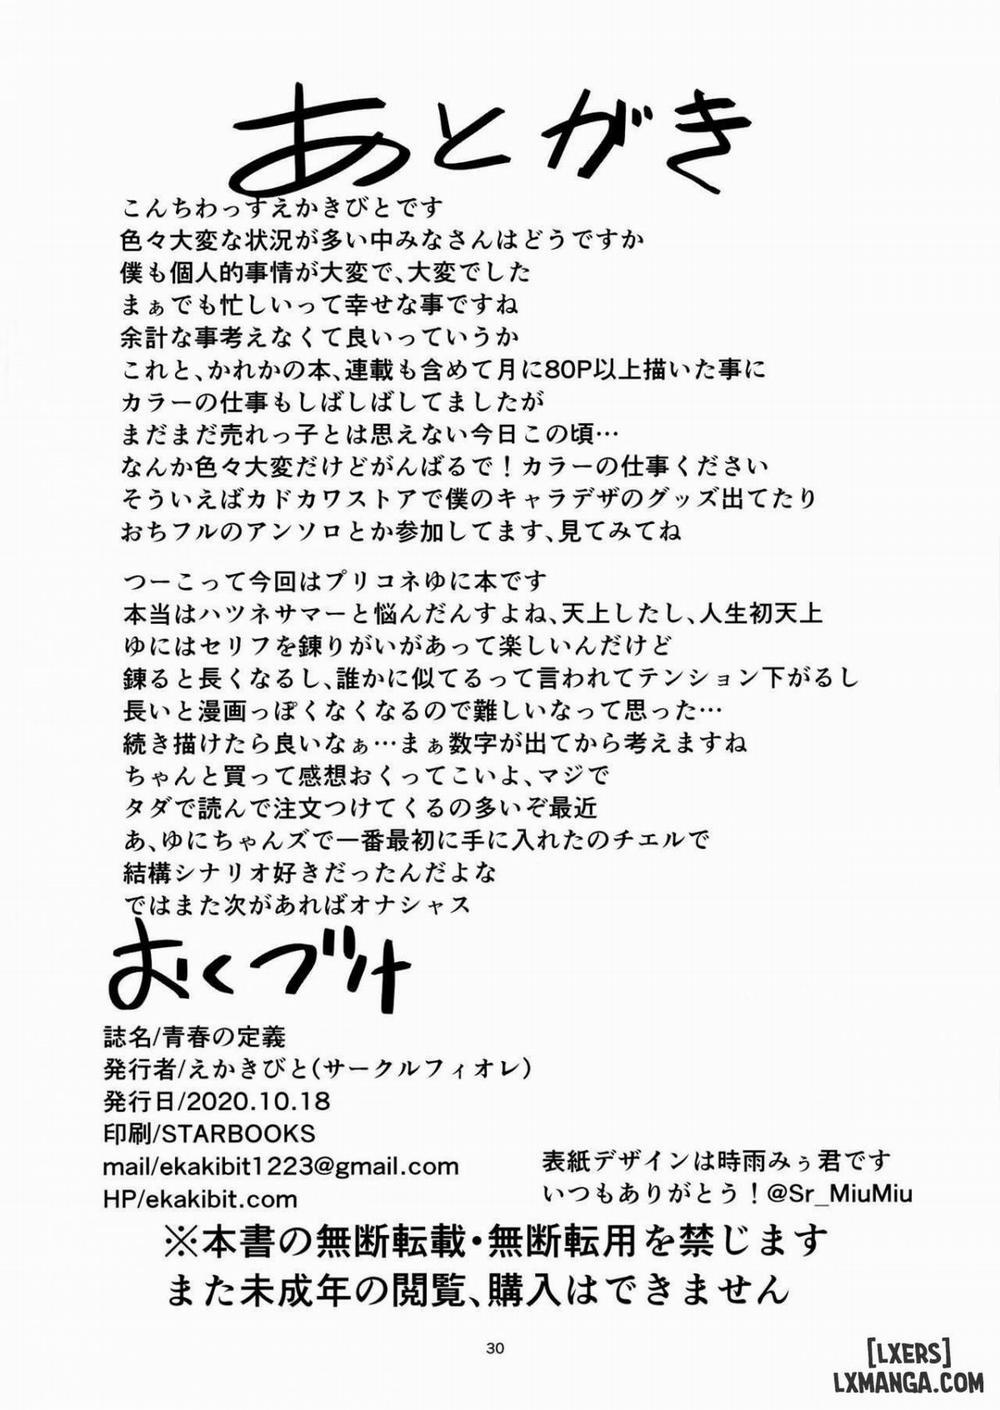 あとがき
こんちわっすえかきびとです
色々大変な状況が多い中みなさんはどうですか
僕も個人的事情が大変で、大変でした
まぁでも忙しいって幸せな事ですね
余計な事考えなくて良いっていうか
これと、かれかの本、連載も含めて月に80P以上描いた事に
カラーの仕事もしばしばしてましたが
まだまだ売れっ子とは思えない今日この頃…
なんか色々大変だけどがんばるで！カラーの仕事ください
そういえばカドカワストアで僕のキャラデザのグッズ出てたり
おちフルのアンソロとか参加してます、見てみてね
つーこって今回はプリコネゆに本です
本当はハツネサマーと悩んだんすよね、天上したし、人生初天上
ゆにはセリフを錬りがいがあって楽しいんだけど
錬ると長くなるし、誰かに似てるって言われてテンション下がるし
長いと漫画っぽくなくなるので難しいなって思った…
続き描けたら良いなぁ…まぁ数字が出てから考えますね
ちゃんと買って感想おくってこいよ、マジで
タダで読んで注文つけてくるの多いぞ最近
あ、ゆにちゃんズで一番最初に手に入れたのチエルで
結構シナリオ好きだったんだよな
ではまた次があればオナシャス
おくづけ
誌名/青春の定義
発行者/えかきびと(サークルフィオレ)
発行日/2020.10.18
印刷/STARBOOKS
mail/ekakibit1223@gmail.com
HP/ekakibit.com
表紙デザインは時雨みぅ君です
いつもありがとう！@Sr_MiuMiu
※本書の無断転載・無断転用を禁じます
また未成年の閲覧、購入はできません
30
[LXERS]
LXMANGA.COM